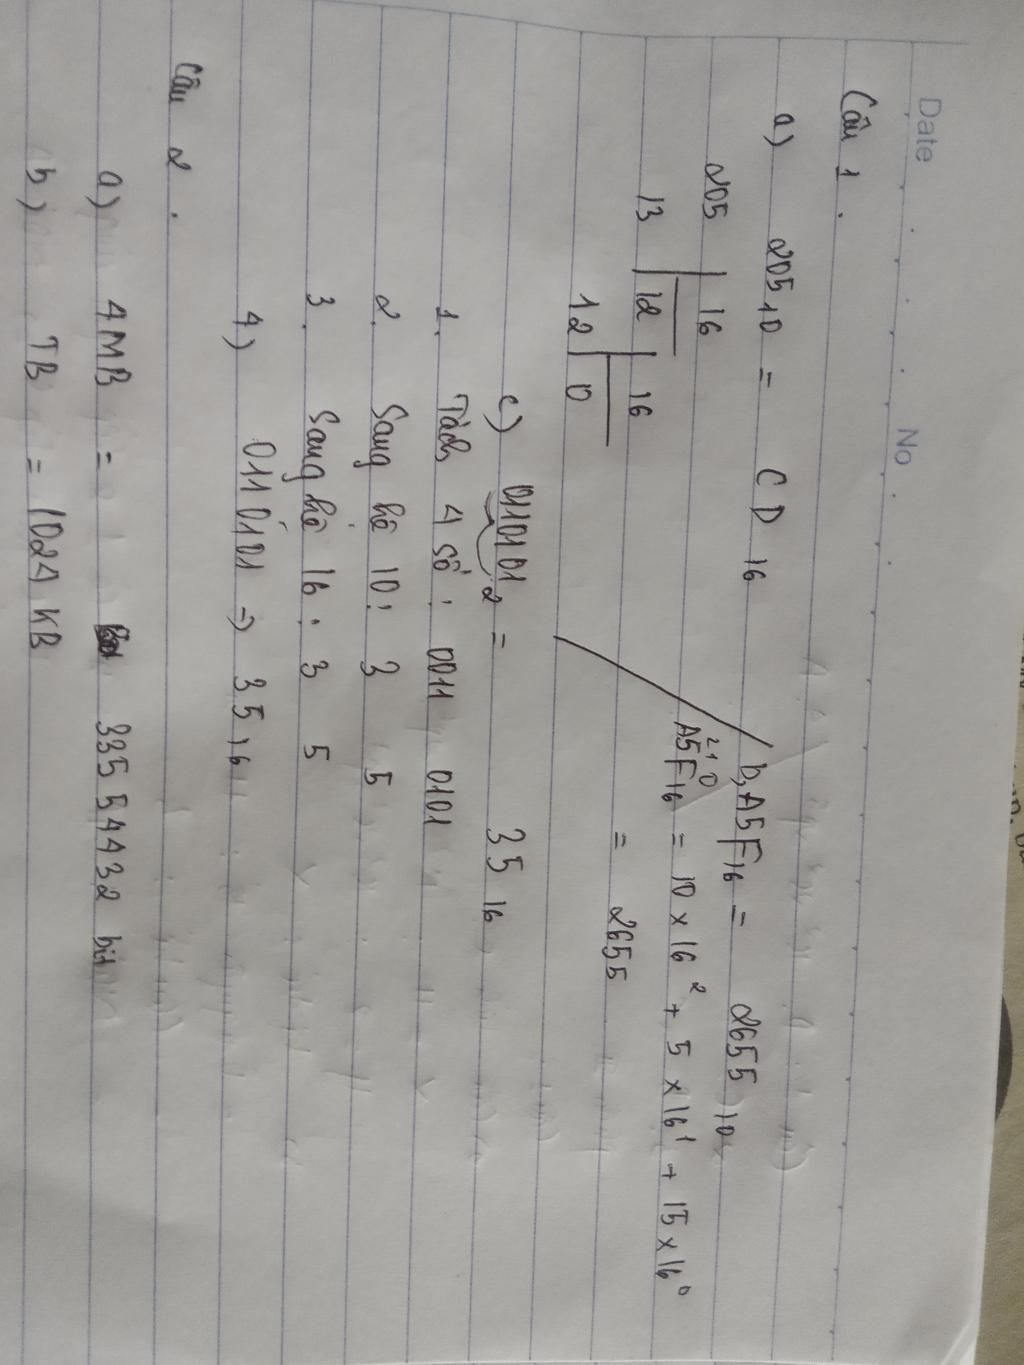 Date No
Câu 1.
a) 205 10 = CD 16
205 16
13 12 16
12 0
b, A5F16 = 2655 10
2 1 0
A5F16 = 10 x 16² + 5 x 16¹ + 15 x 16⁰
= 2655
c) 0110101 2 = 35 16
1. Tách 4 số: 0011 0101
2. Sang hệ 10: 3 5
3. Sang hệ 16: 3 5
4) 0110101 => 35 16
Câu 2.
a) 4MB = 33554432 bit
b) TB = 1024 KB